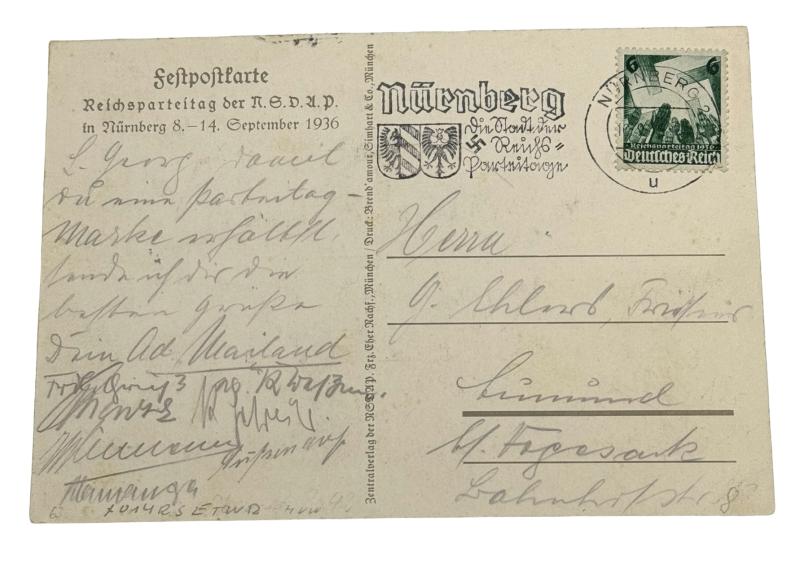 Festpostkarte
Reichsparteitag der N.S.D.A.P.
in Nürnberg 8.–14. September 1936
L. Georg, damit
du eine Parteitag-
Marke erhältst,
sende ich dir die
besten Grüße
Dein Ad. Mailand
Zentralverlag der NSDAP. Frz. Eher Nachf., München / Druck: Brend'amour, Simhart & Co., München
Nürnberg
Die Stadt der
Reichs=
Parteitage
NÜRNBERG 2
u
6 6
Reichsparteitag 1936
Deutsches Reich
Herrn
G. Ehlers, Friseur
Aumund
b/ Vegesack
Bahnhofstr. 8